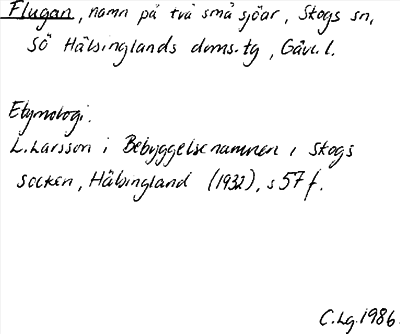 Flugan, namn på två små sjöar, Skogs sn,
SÖ Hälsinglands doms.tg, Gävl.l.
Etymologi.
L. Larsson i Bebyggelsenamnen i Skogs
socken, Hälsingland (1932), s 57 f.
C.Lg. 1986.